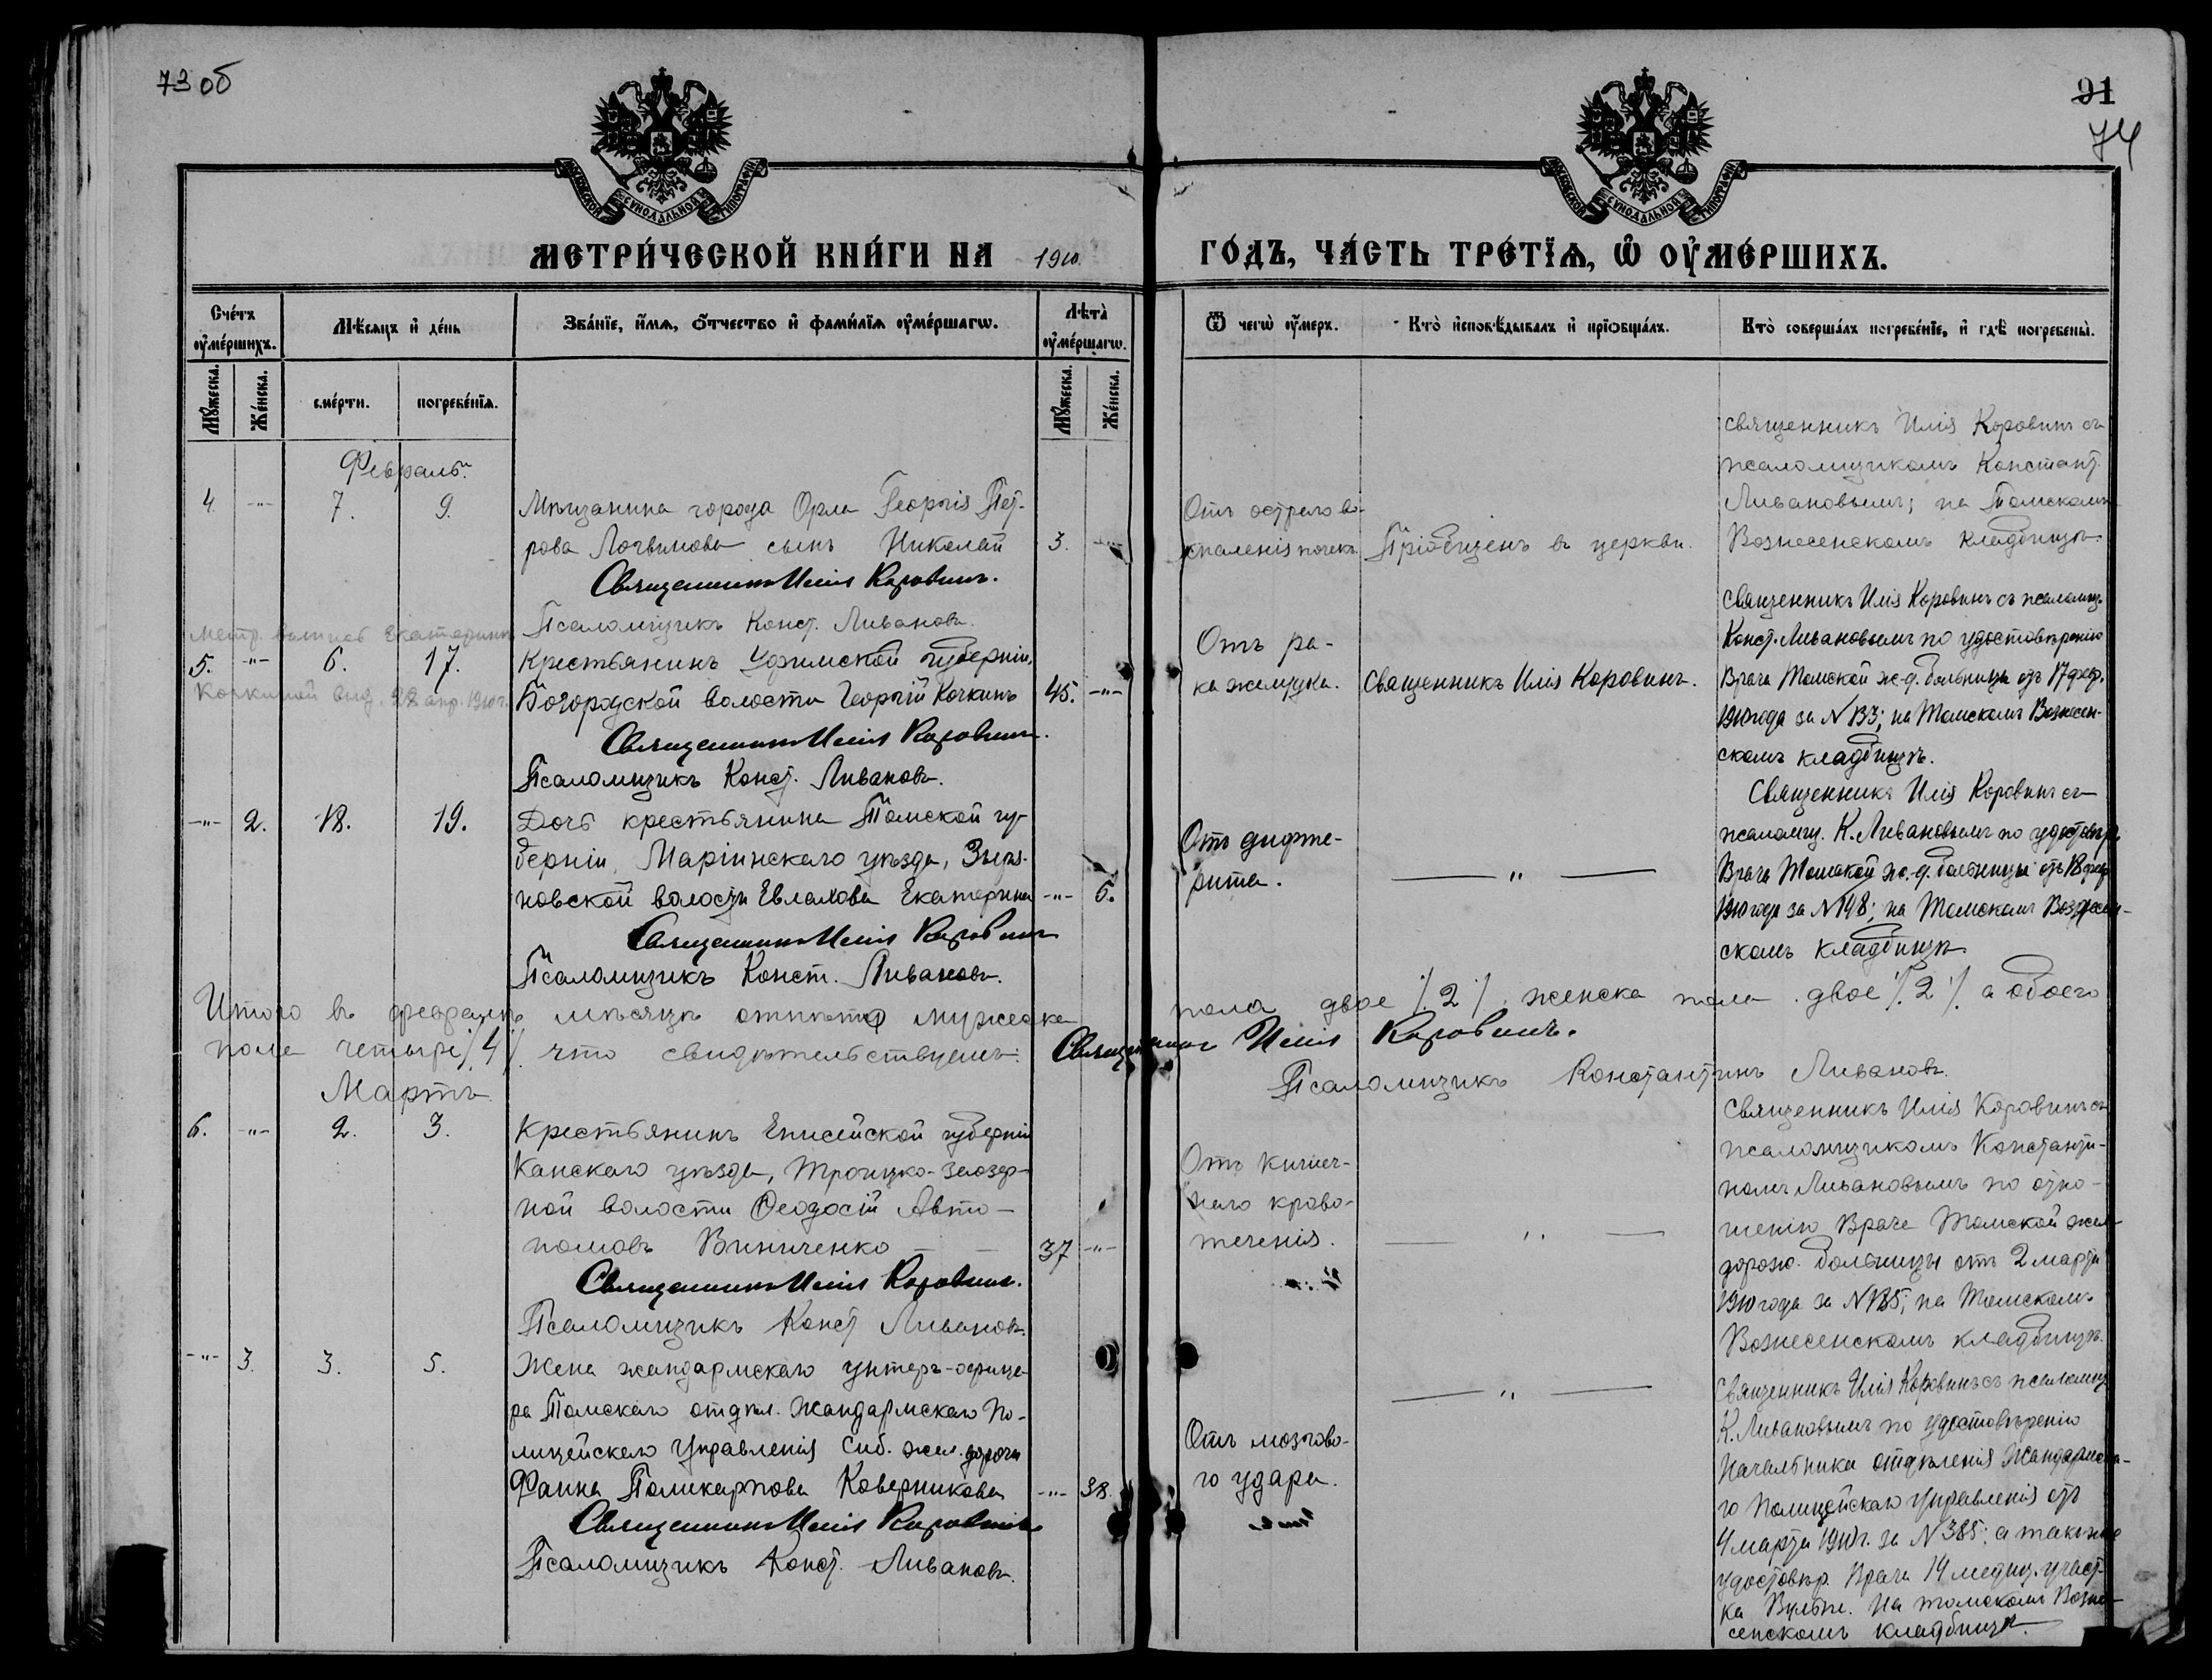 73 об
91
74
МОСКОВСКОЙ СУНОДАЛЬНОЙ ТИПОГРАФІИ
МОСКОВСКОЙ СУНОДАЛЬНОЙ ТИПОГРАФІИ
МЕТРИ́ЧЕСКОЙ КНИ́ГИ НА 1910
ГО́ДЪ, ЧА́СТЬ ТРЕ́ТЇѦ, Ѡ҆ ОУ҆МЕ́РШИХЪ.
Сче́тъ оу҆ме́ршихъ.
Мꙋ́жеска.
Же́нска.
Мѣ́сяцъ и҆ де́нь
сме́рти.
погребе́нїѧ.
Зва́нїе, и҆́мѧ, ѻ҆́тчество и҆ фами́лїѧ оу҆ме́ршагѡ.
Лѣ́та̀ оу҆ме́ршагѡ.
Мꙋ́жеска.
Же́нска.
Ѿ чегѡ̀ оу҆́меръ.
Кто̀ и҆сповѣ́дывалъ и҆ прїѻбща́лъ.
Кто̀ соверша́лъ погребе́нїе, и҆ гдѣ̀ погребены̀.
Февраль.
4. -"- 7. 9.
Мѣщанина города Орла Георгія Пет-
рова Логвинова сынъ Николай 3. -"-
Священникъ Илія Коровинъ.
Псаломщикъ Конст. Ливановъ.
Отъ остраго во-
спаленія почекъ
Пріобщенъ въ церкви.
Священникъ Илія Коровинъ съ
псаломщикомъ Констант.
Ливановымъ; на Томскомъ
Вознесенскомъ кладбищѣ.
Метр. выпись Екатеринѣ
Кочкиной выд. 28 апр. 1910 г.
5. -"- 6. 17.
Крестьянинъ Уфимской губерніи,
Богородской волости Георгій Кочкинъ 45. -"-
Священникъ Илія Коровинъ.
Псаломщикъ Конст. Ливановъ.
Отъ ра-
ка желудка.
Священникъ Илія Коровинъ.
Священникъ Илія Коровинъ съ псаломщ.
Конст. Ливановымъ по удостовѣренію
Врача Томской ж-д. больницы отъ 17 фев.
1910 года за N 133; на Томскомъ Вознесен-
скомъ кладбищѣ.
-"- 2. 18. 19.
Дочь крестьянина Томской гу-
берніи, Маріинскаго уѣзда, Зыря-
новской волости Евлахова Екатерина -"- 6.
Священникъ Илія Коровинъ
Псаломщикъ Конст. Ливановъ.
Отъ дифте-
рита.
— " —
Священникъ Илія Коровинъ съ
псаломщ. К. Ливановымъ по удостовѣр.
Врача Томской ж.-д. больницы отъ 18 фев.
1910 года за N 148; на Томскомъ Вознесен-
скомъ кладбищѣ.
Итого въ февралѣ мѣсяцѣ отпѣто мужеска пола двое /.2./. женска пола двое /.2./. а обоего
пола четыре /.4./. что свидѣтельствуемъ: Священникъ Илія Коровинъ.
Псаломщикъ Константинъ Ливановъ.
Мартъ
6. -"- 2. 3.
Крестьянинъ Енисейской губерніи
Канскаго уѣзда, Троицко-Заозер-
ной волости Ѳеодосій Авто-
номовъ Виниченко — — 37 -"-
Священникъ Илія Коровинъ.
Псаломщикъ Конст Ливановъ.
Отъ кишеч-
наго крово-
теченія.
— " —
Священникъ Илія Коровинъ съ
псаломщикомъ Константи-
номъ Ливановымъ по отно-
шенію Врача Томской жел-
дорож. больницы отъ 2 марта
1910 года за N 185; на Томскомъ
Вознесенскомъ кладбищѣ.
-"- 3. 3. 5.
Жена жандармскаго унтеръ-офице-
ра Томскаго отдѣл. Жандармскаго По-
лицейскаго Управленія Сиб. жел. дороги
Фаина Поликарпова Коверникова -"- 38.
Священникъ Илія Коровинъ
Псаломщикъ Конст. Ливановъ.
Отъ мозгово-
го удара.
— " —
Священникъ Илія Коровинъ съ псаломщ.
К. Ливановымъ по удостовѣренію
Начальника отдѣленія Жандармска-
го Полицейскаго Управленія отъ
4 марта 1910 г. за N 385; а также
удостовѣр. Врача 14 медиц. участ-
ка на Томскомъ Возне-
сенскомъ кладбищѣ.